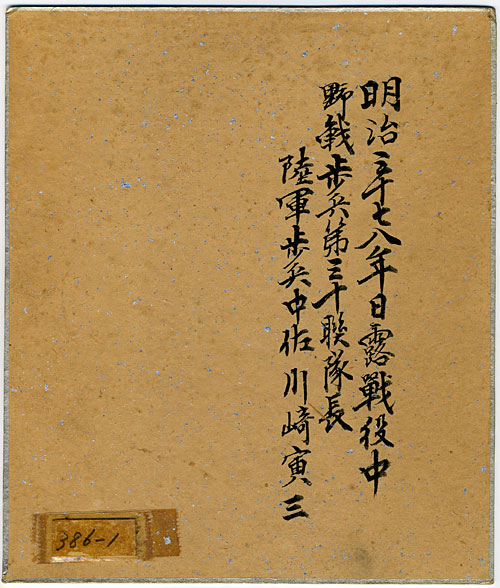 明治三十七八年日露戰役中
野戦歩兵第三十聯隊長
陸軍歩兵中佐川﨑寅三
386-1